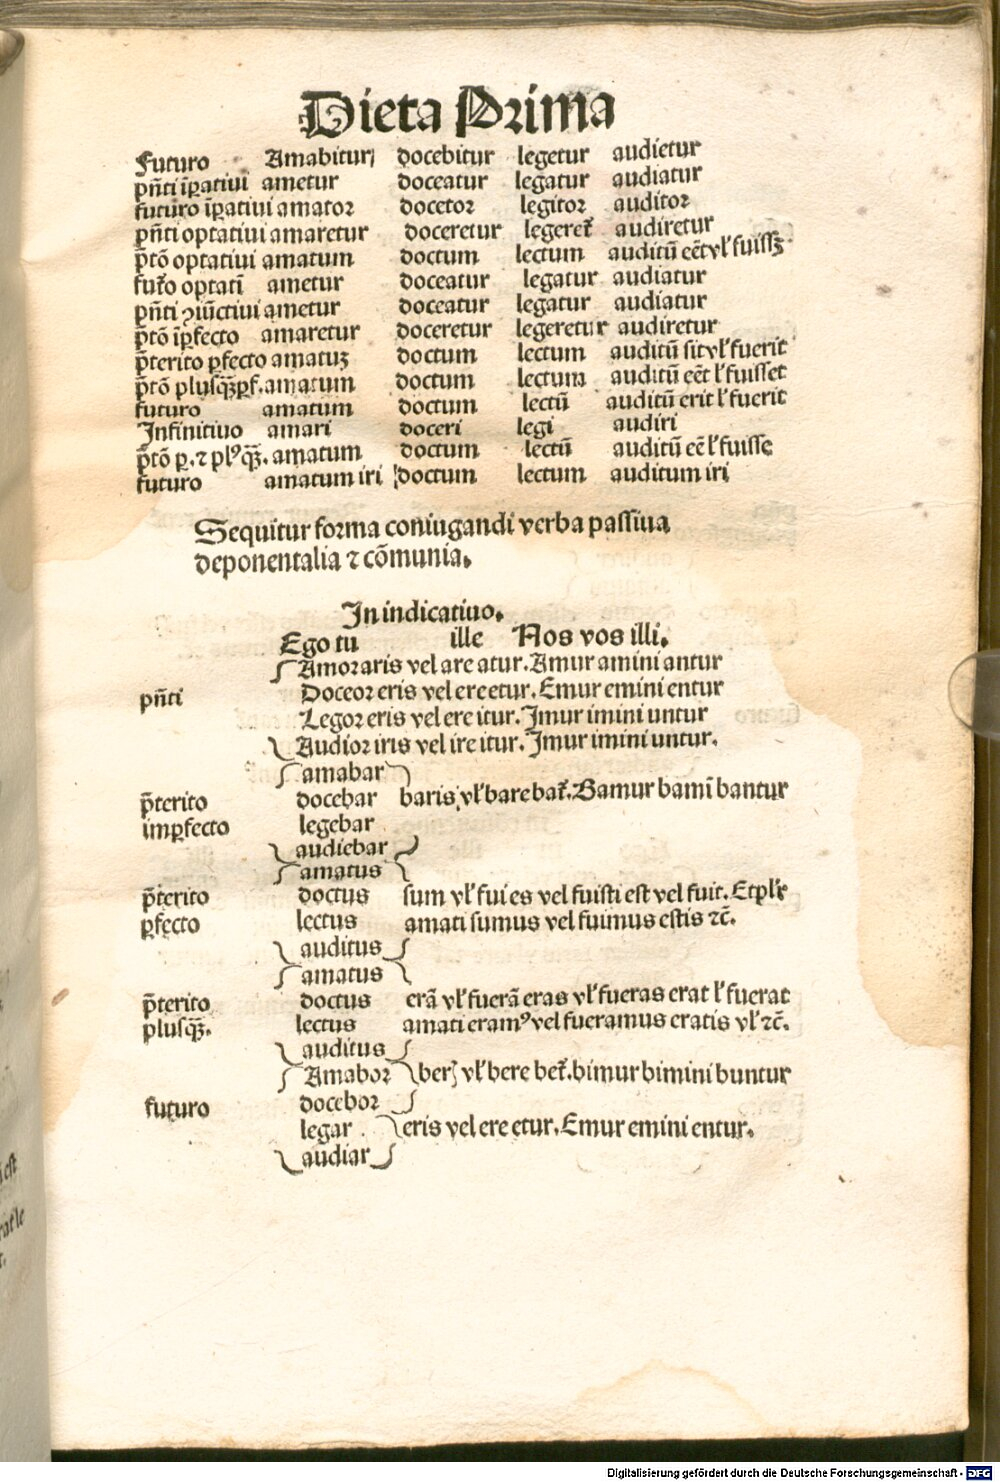 Dieta Prima
Futuro Amabitur docebitur legetur audietur
pñti īꝑatiui ametur doceatur legatur audiatur
futuro īꝑatiui amator docetor legitor auditor
pñti optatiui amaretur doceretur legeret̄ audiretur
p̄tō optatiui amatum doctum lectum auditū eēt vl' fuissꝫ
futo optatī ametur doceatur legatur audiatur
pñti ꝯiūctiui ametur doceatur legatur audiatur
p̄tō īꝑfecto amaretur doceretur legeretur audiretur
p̄terito ꝑfecto amatuꝫ doctum lectum auditū sit vl' fuerit
p̄tō plusq̄ꝫꝑf. amatum doctum lectum auditū eēt l' fuisset
futuro amatum doctum lectū auditū erit l' fuerit
Infinitiuo amari doceri legi audiri
p̄tō ꝑ. ⁊ plꝰq̄ꝫ. amatum doctum lectū auditū eē l' fuisse
futuro amatum iri doctum lectum auditum iri
Sequitur forma coniugandi verba passiua
deponentalia ⁊ cōmunia.
In indicatiuo.
Ego tu ille Nos vos illi.
Amor aris vel are atur. Amur amini antur
pñti Doceor eris vel ere etur. Emur emini entur
Legor eris vel ere itur. Imur imini untur
Audior iris vel ire itur. Imur imini untur.
amabar
p̄terito docebar baris vl' bare bat̄. Bamur bamī bantur
imꝑfecto legebar
audiebar
amatus
p̄terito doctus sum vl' fui es vel fuisti est vel fuit. Et
ꝑfecto lectus amati sumus vel fuimus estis ⁊c̄.
auditus
amatus
p̄terito doctus erā vl' fuerā eras vl' fueras erat l' fuerat
plusq̄ꝫ. lectus amati eramꝰ vel fueramus eratis vl' ⁊c̄.
auditus
Amabor ber vl' bere bet̄. bimur bimini buntur
futuro docebor
legar eris vel ere etur. Emur emini entur.
audiar
Digitalisierung gefördert durch die Deutsche Forschungsgemeinschaft - DFG